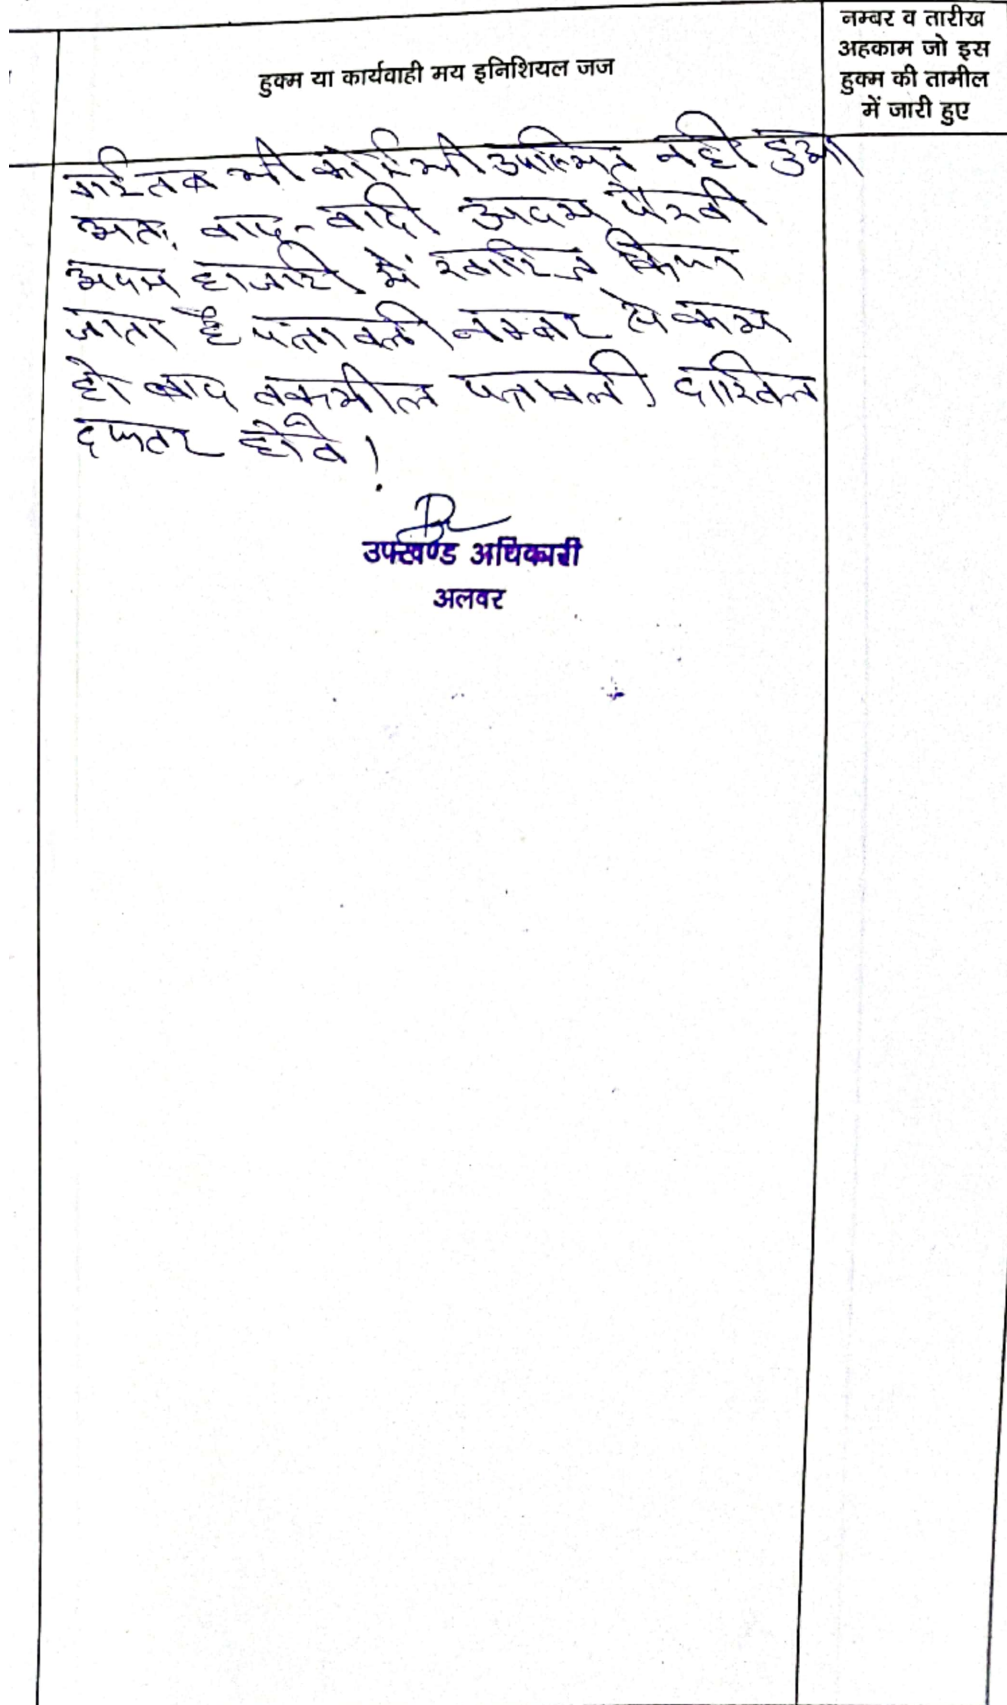 हुक्म या कार्यवाही मय इनिशियल जज
नम्बर व तारीख
अहकाम जो इस
हुक्म की तामील
में जारी हुए
गई तब भी कोई भी उपस्थित नही हुआ
अतः वाद-वादी अदम पैरवी
अदम हाजरी में खारिज किया
जाता है पत्रावली नम्बर से कम
हो बाद तकमील पत्रावली दाखिल
दफ्तर होवे।
उपखण्ड अधिकारी
अलवर